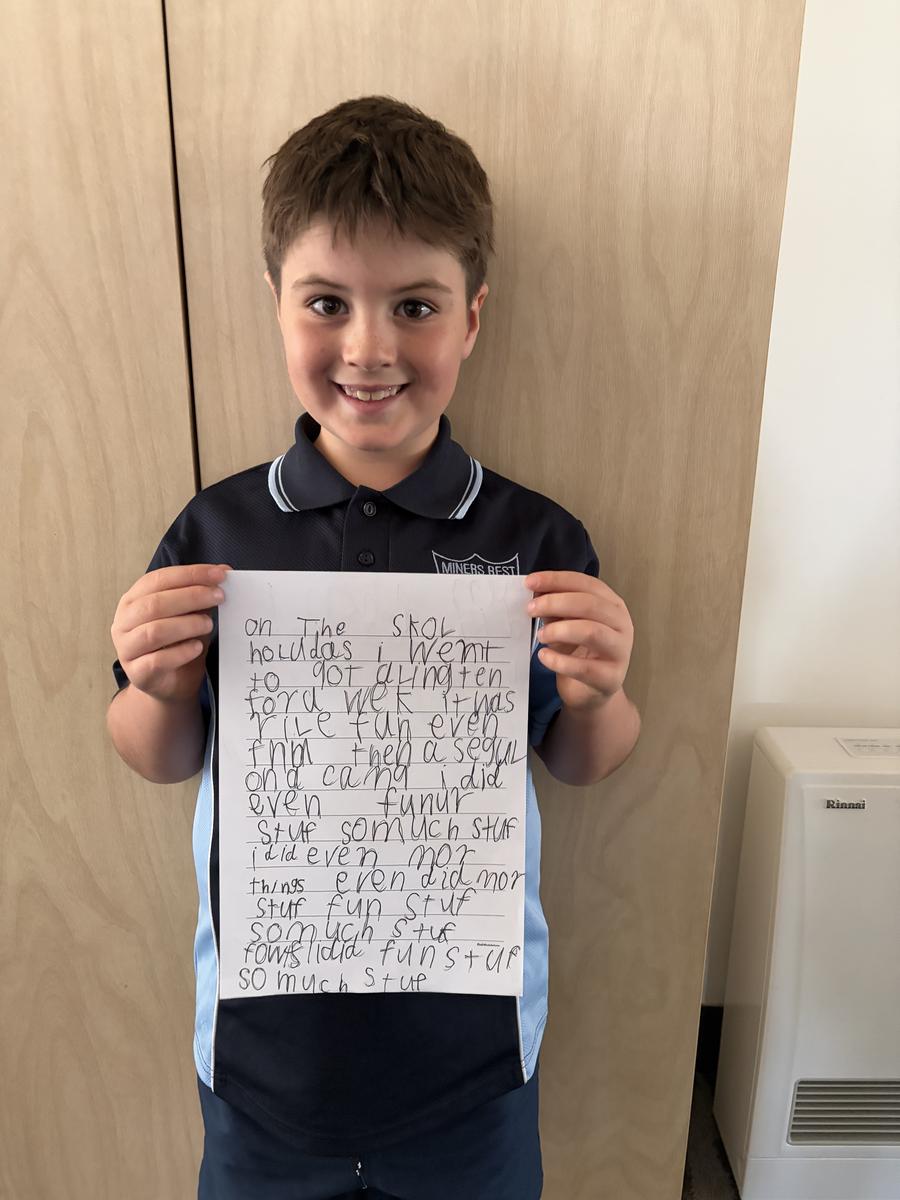 MINERS REST
on The SKOL
holudas i went
to got alington
for a wek it was
rile fun even
then a segul
on a camg i did
even funur
stuf so much stuf
i did even mor
things even did mor
stuf fun stuf
so much stuf
i did fun stuf
so much stuf
Rinnai